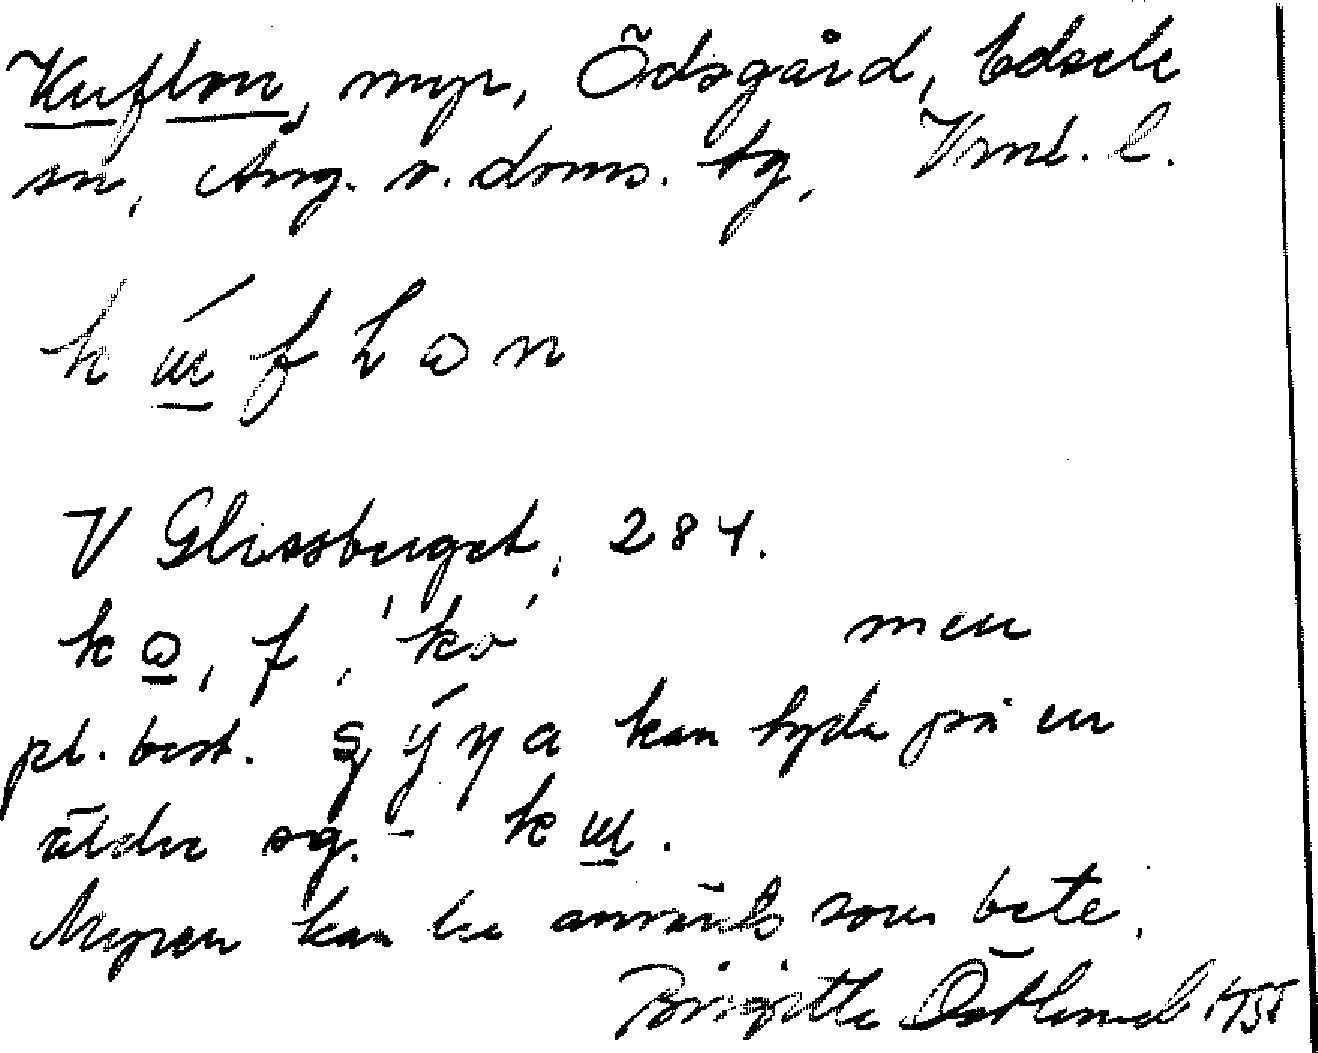 Kuflon, myr, Ödsgård, Edsele
sn, Ång. v. doms. tg, Vrnl. l.
k ɯ́ f l ɷ n
V Glissberget, 284.
k ɷ, f, 'ko' men
pl. best. ý n a kan tyda på en
äldre sg. - k ɯ.
Myren kan ha använts som bete.
Birgitta Östlund 1955